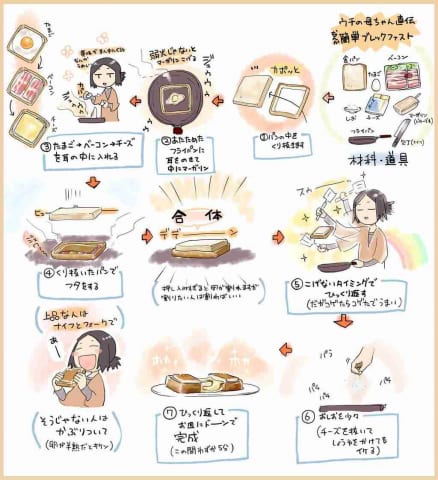 ウチの母ちゃん直伝
簡単ブレックファスト
食パン
たまご
ベーコン
しお
チーズ
マーガリン
フライパン
包丁
材料・道具
カポッと
①パンの中を
くり抜きます
弱火じゃないと
マーガリンこげる
ジュウウウ
②あたためた
フライパンに
耳をのせて
中にマーガリン
たまご
ベーコン
チーズ
③たまご→ベーコン→チーズ
を耳の中に入れる
④くり抜いたパンで
フタをする
合体
デデーーン
押し入れすぎると卵が割れますが
割りたい人は割ればいい
⑤こげないタイミングで
ひっくり返す
(だがコゲたらコゲたでうまい)
パラ
パラ
パラ
⑥おしおを少々
(チーズを抜いて
しょうゆをかけても
イケる)
ホカ
ホカ
⑦ひっくり返して
お皿にドーンで
完成
(この間わずか5分)
上品な人は
ナイフとフォークで
あー
そうじゃない人は
かぶりついて
(卵が半熟だとキケン)